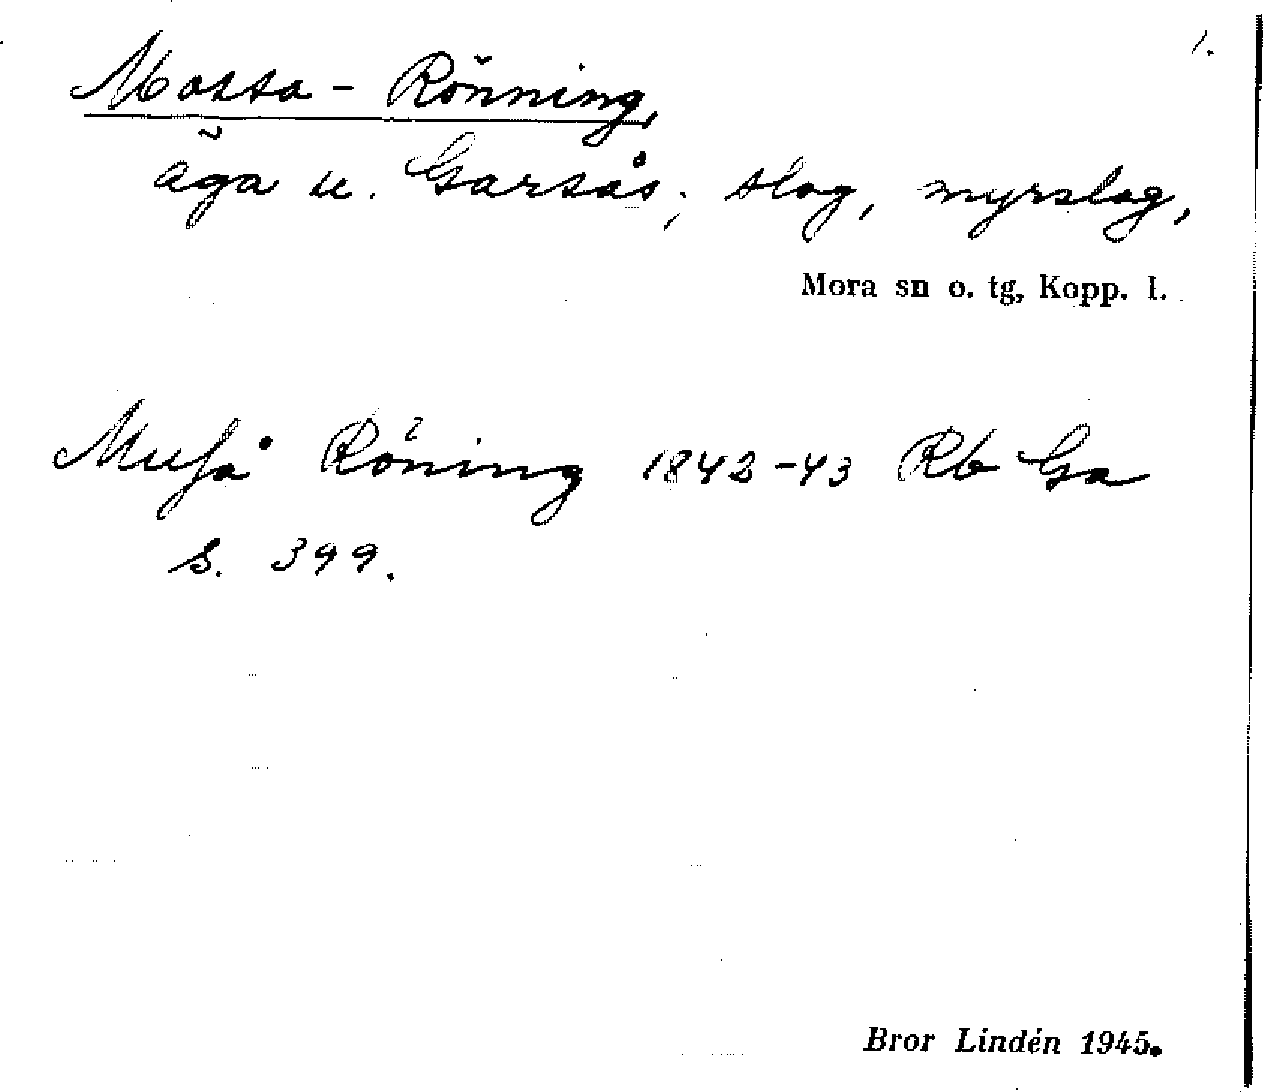 1.
Mossa-Rönning,
äga u. Garsås; slog, myrslog,
Mora sn o. tg, Kopp. l.
Röning 1842-43 Rb Ga
s. 399.
Bror Lindén 1945.